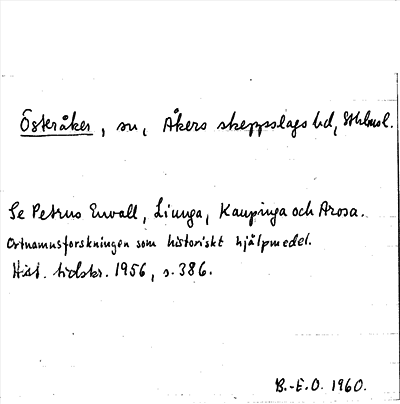 Österåker, sn, Åkers skeppslags hd, Sthlmsl.
Se Petrus Envall, Liunga, Kaupinga och Arosa.
Ortnamnsforskningen som historiskt hjälpmedel.
Hist. tidskr. 1956, s. 386.
B.-E.O. 1960.